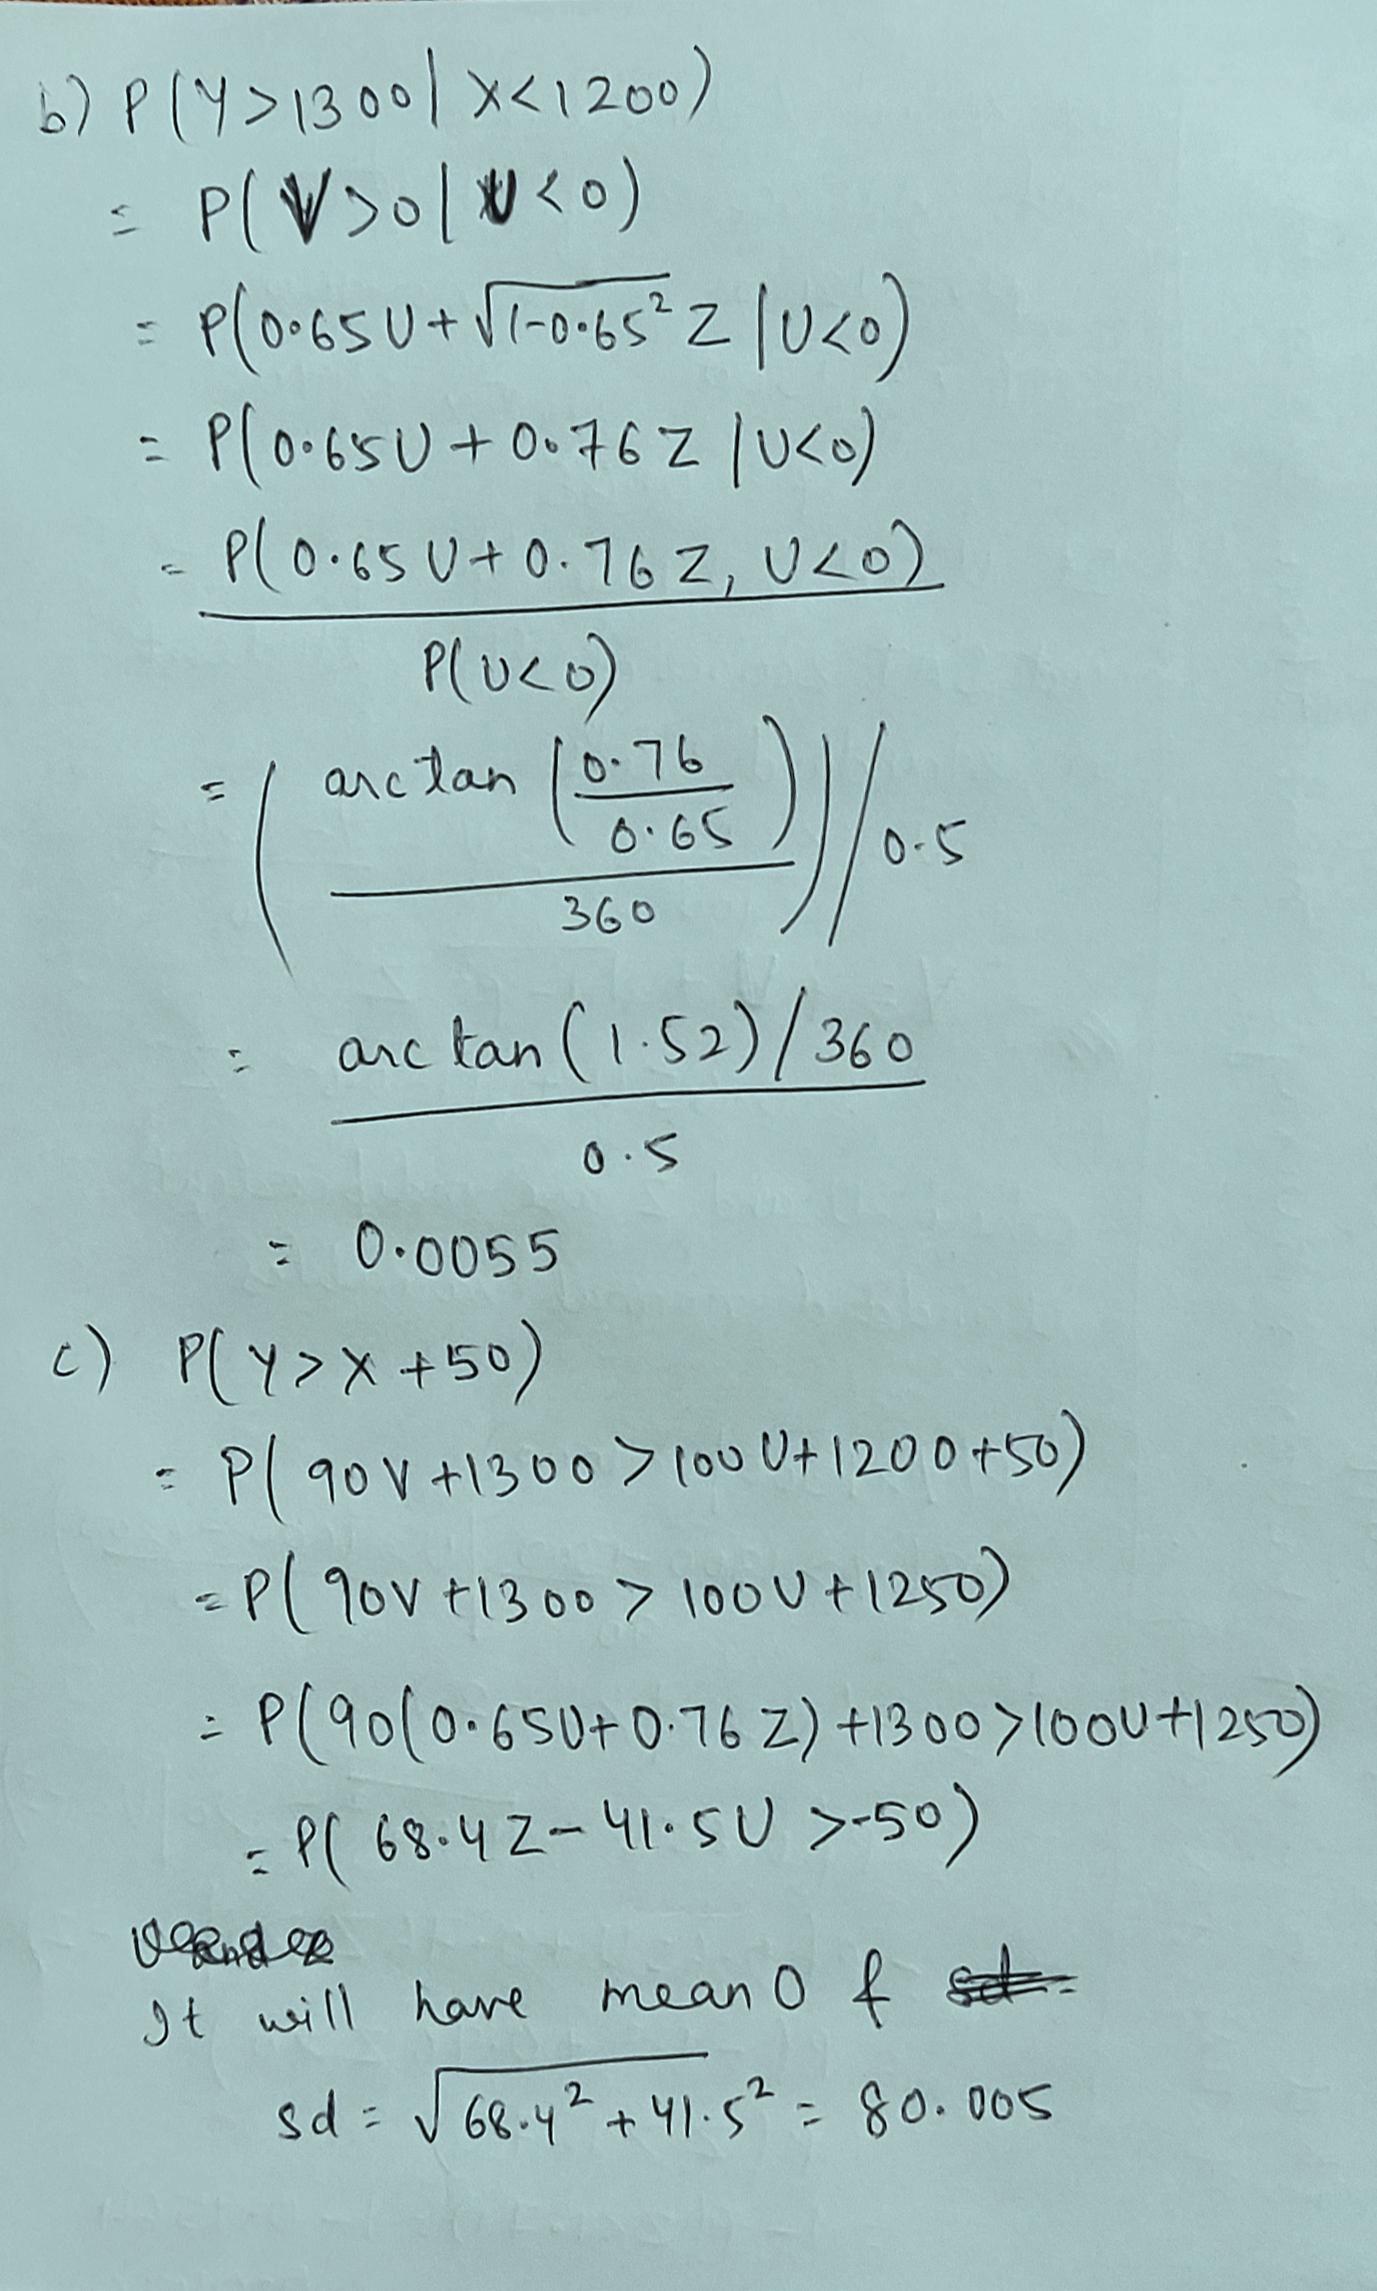 b) P(Y>1300|X<1200)
= P(V>0|U<0)
= P(0.65U+√1-0.65² Z |U<0)
= P(0.65U+0.76Z |U<0)
= P(0.65U+0.76Z, U<0)
P(U<0)
= (arc tan (0.76
0.65)
360) / 0.5
= arc tan (1.52)/360
0.5
= 0.0055
c) P(Y>X+50)
= P(90V+1300>100U+1200+50)
=P(90V+1300>100U+1250)
= P(90(0.65U+0.76Z)+1300>100U+1250)
= P(68.4Z-41.5U >-50)
It will have mean 0 &
sd = √68.4²+41.5² = 80.005